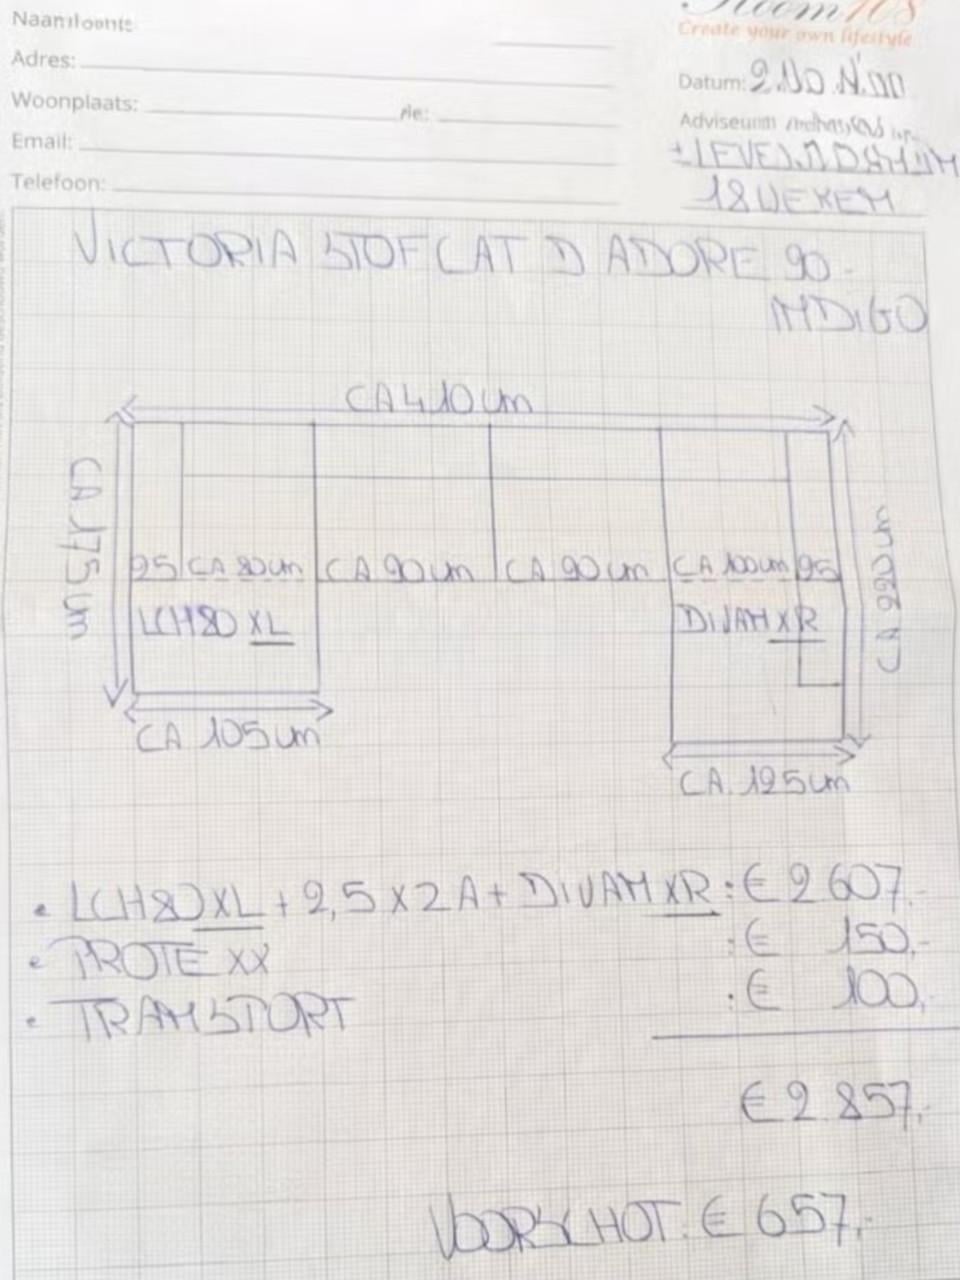 Room108
Create your own lifestyle
Adres:
Woonplaats:
Email:
Telefoon:
Datum:
18 WEKEN
VICTORIA STOF CAT D ADORE 90-
INDIGO
CA 410 cm
CA 175 cm
CA 220 cm
25 CA 80 cm CA 90 cm CA 90 cm CA 100 cm 25
LCH80 XL DIVAN XR
CA 105 cm
CA. 125 cm
• LCH80 XL + 2,5 X 2A + DIVAN XR : € 2 607,-
• PROTEXX : € 150,-
• TRANSPORT : € 100,-
€ 2 857,-
VOORSCHOT: € 657,-